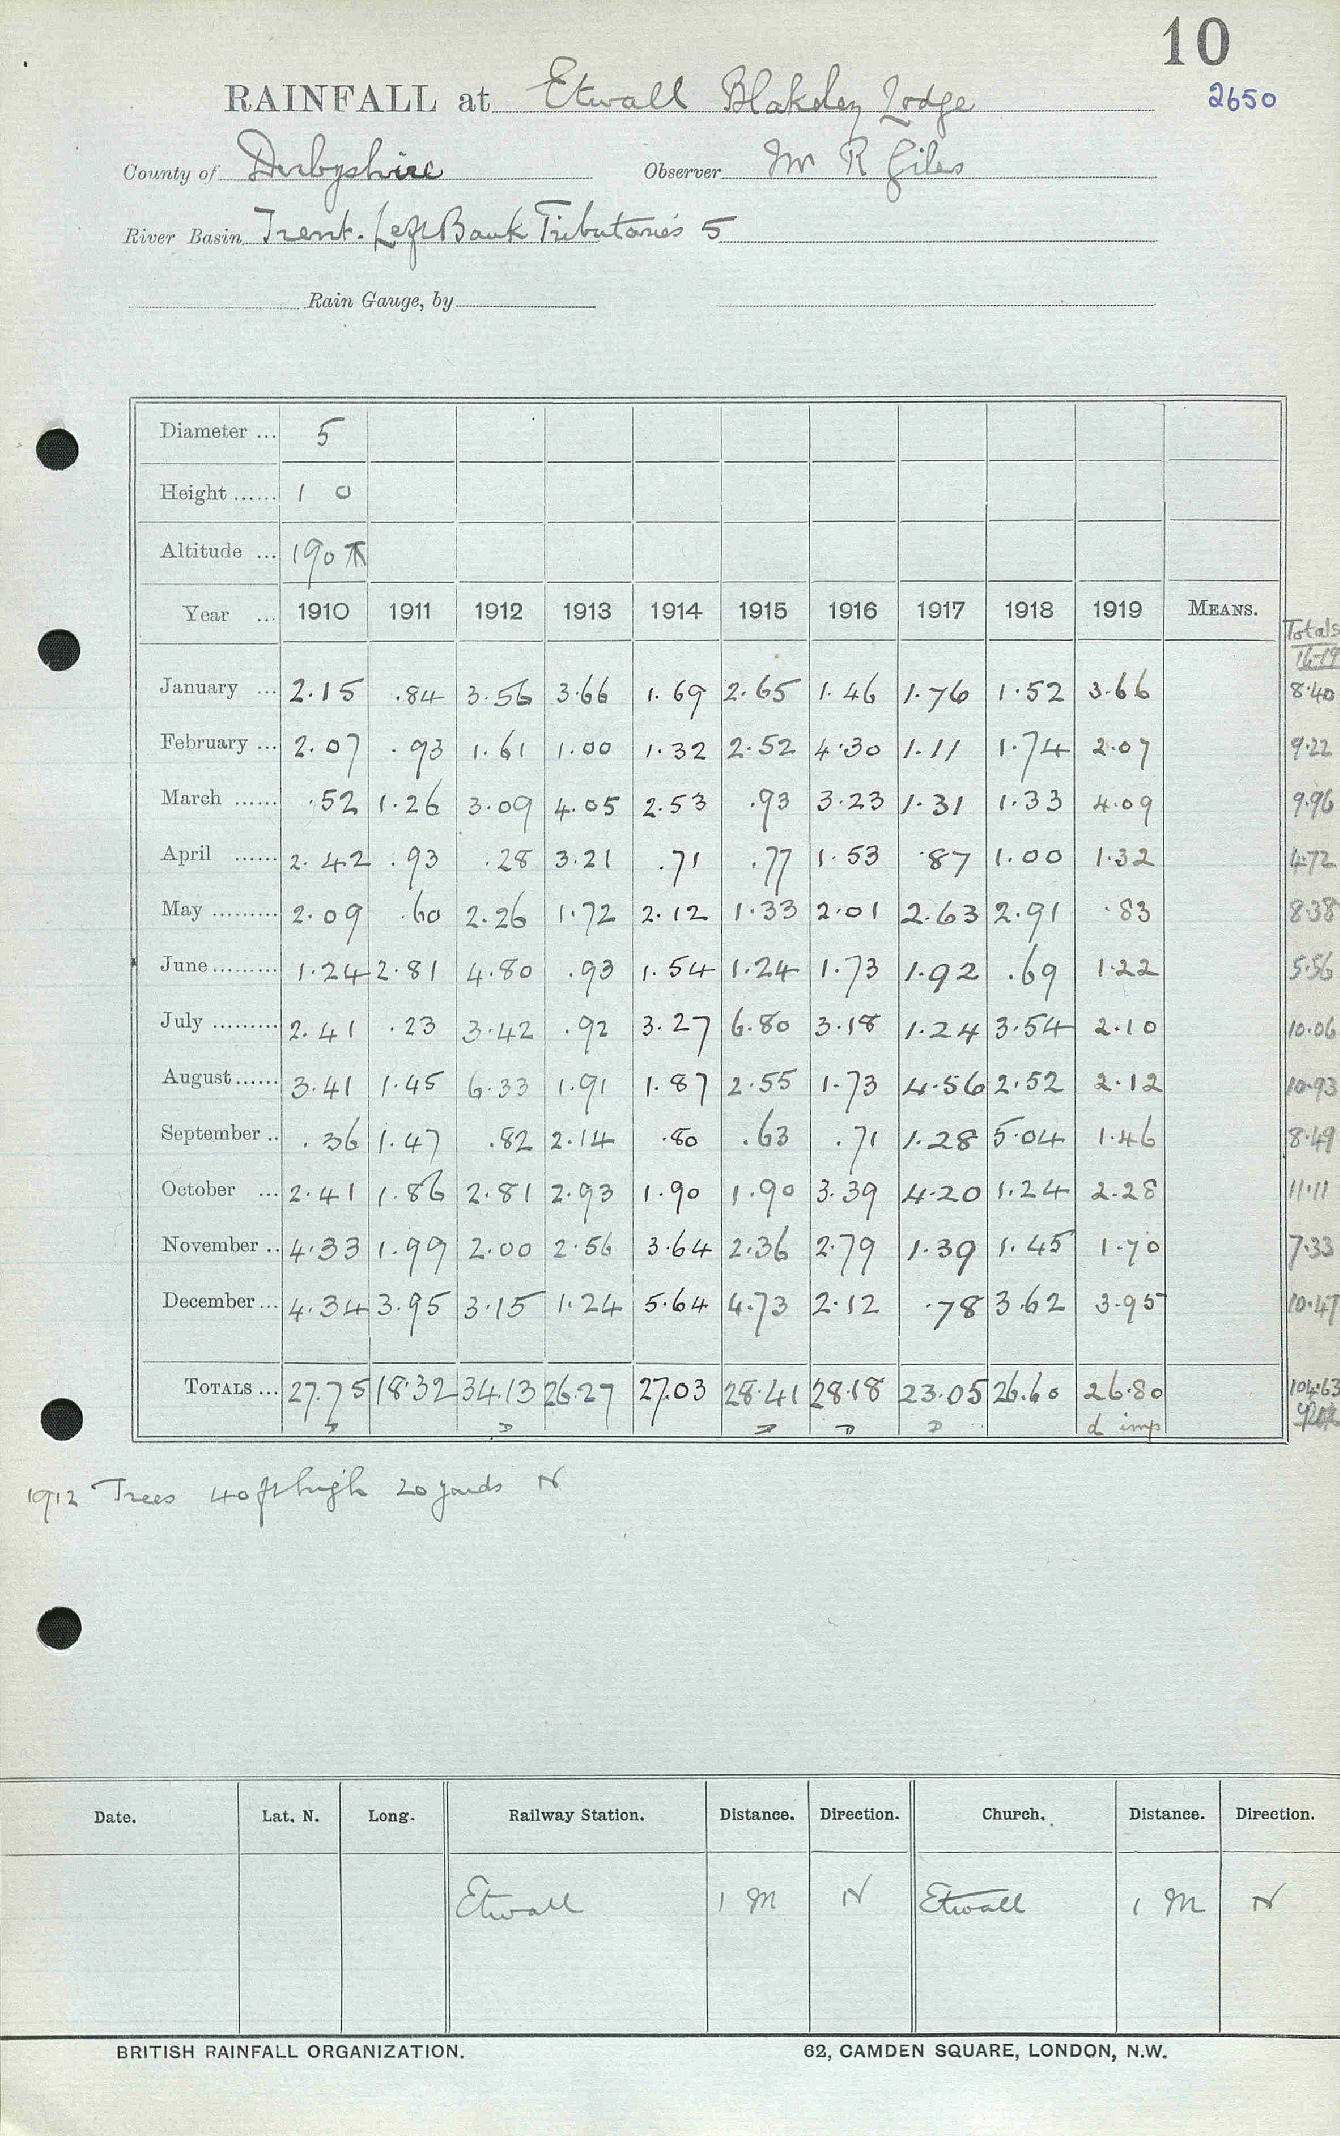 10
RAINFALL at Etwall Blakeley Lodge 2650
County of Derbyshire Observer Mr R Giles
River Basin Trent. Left Bank Tributaries 5
Rain Gauge, by
Diameter ... 5
Height ...... 1 0
Altitude ... 190
Year ... 1910 1911 1912 1913 1914 1915 1916 1917 1918 1919 MEANS. Totals
16-19
January ... 2.15 .84 3.56 3.66 1.69 2.65 1.46 1.76 1.52 3.66 8.40
February ... 2.07 .93 1.61 1.00 1.32 2.52 4.30 1.11 1.74 2.07 9.22
March ...... .52 1.26 3.09 4.05 2.53 .93 3.23 1.31 1.33 4.09 9.96
April ...... 2.42 .93 .28 3.21 .71 .77 1.53 .87 1.00 1.32 4.72
May ......... 2.09 .60 2.26 1.72 2.12 1.33 2.01 2.63 2.91 .83 8.38
June ......... 1.24 2.81 4.80 .93 1.54 1.24 1.73 1.92 .69 1.22 5.56
July ......... 2.41 .23 3.42 .92 3.27 6.80 3.18 1.24 3.54 2.10 10.06
August ...... 3.41 1.45 6.33 1.91 1.87 2.55 1.73 4.56 2.52 2.12 10.93
September .. .36 1.47 .82 2.14 .80 .63 .71 1.28 5.04 1.46 8.49
October ... 2.41 1.86 2.81 2.93 1.90 1.90 3.39 4.20 1.24 2.28 11.11
November .. 4.33 1.99 2.00 2.56 3.64 2.36 2.79 1.39 1.45 1.70 7.33
December ... 4.34 3.95 3.15 1.24 5.64 4.73 2.12 .78 3.62 3.95 10.47
TOTALS ... 27.75 18.32 34.13 26.27 27.03 28.41 28.18 23.05 26.60 26.80 104.63
D D D D D d imp
1912 Trees 40 ft high 20 yards N
Date. Lat. N. Long. Railway Station. Distance. Direction. Church. Distance. Direction.
Etwall 1 M N Etwall 1 M N
BRITISH RAINFALL ORGANIZATION. 62, CAMDEN SQUARE, LONDON, N.W.